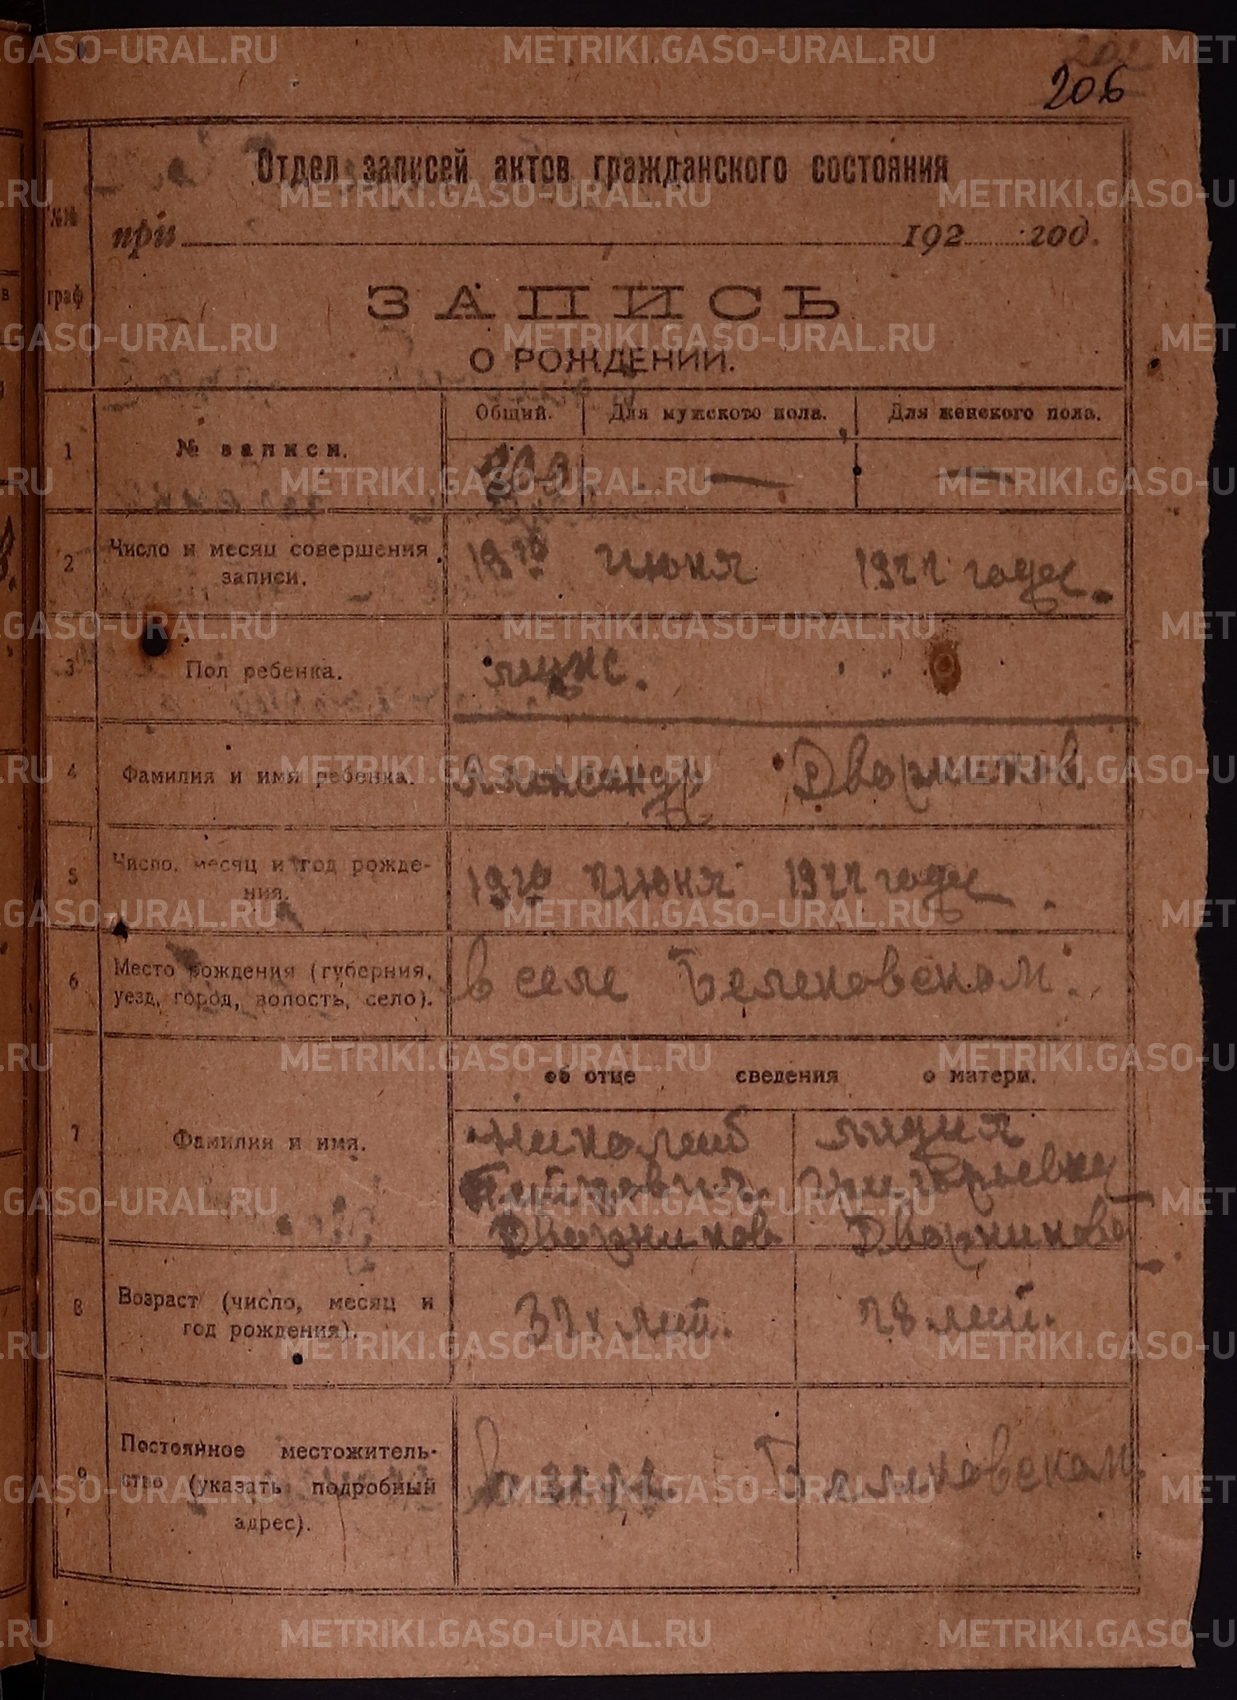 206
Отдел записей актов гражданского состояния
№№ граф
при 192 год.
ЗАПИСЬ
О РОЖДЕНИИ.
Общий. Для мужского пола. Для женского пола.
1 № записи. — —
2 Число и месяц совершения записи. июня 1922 года.
3 Пол ребенка. мужс.
4 Фамилия и имя ребенка. Александр Дворников.
5 Число, месяц и год рождения. 19го июня 1922 года.
6 Место рождения (губерния, уезд, город, волость, село). в селе
об отце сведения о матери.
7 Фамилия и имя. Николай Лидия
Григорьевна
Дворников Дворникова
8 Возраст (число, месяц и год рождения). лет. 28 лет.
9 Постоянное местожительство (указать подробный адрес). в селе
METRIKI.GASO-URAL.RU